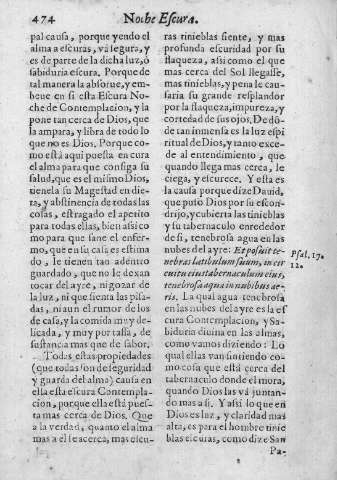 474
Noche Escura.
pal causa, porque yendo el
alma a escuras, và segura, y
es de parte de la dicha luz, ò
sabiduria escura. Porque de
tal manera la absorue, y em-
beue en si esta Escura No-
che de Contemplacion, y la
pone tan cerca de Dios, que
la ampara, y libra de todo lo
que no es Dios. Porque co-
mo està aqui puesta en cura
el alma para que consiga su
salud, que es el mismo Dios,
tienela su Magestad en die-
ta, y abstinencia de todas las
cosas, estragado el apetito
para todas ellas, bien assi co
mo para que sane el enfer-
mo, que en su casa es estima
do, le tienen tan adentro
guardado, que no le dexan
tocar del ayre, ni gozar de
la luz, ni que sienta las pisa-
das, ni aun el rumor de los
de casa, y la comida muy de-
licada, y muy por tassa, de
sustancia mas que de sabor.
Todas estas propiedades
(que todas son de seguridad
y guarda del alma) causa en
ella esta escura Contempla-
cion, porque ella està pues-
ta mas cerca de Dios. Que
a la verdad, quanto el alma
mas a èl se acerca, mas escu-
ras tinieblas siente, y mas
profunda escuridad por su
flaqueza, assi como el que
mas cerca del Sol llegasse,
mas tinieblas, y pena le cau-
saria su grande resplandor
por la flaqueza, impureza, y
cortedad de sus ojos. De dò-
de tan inmensa es la luz espi
ritual de Dios, y tanto exce-
de al entendimiento, que
quando llega mas cerca, le
ciega, y escurece. Y esta es
la causa porque dize Dauid,
que puso Dios por su escon-
drijo, y cubierta las tinieblas
y su tabernaculo enrededor
de sì, tenebrosa agua en las
nubes del ayre: Et posuit te-
nebras latibulum suum, in cir
cuitu eius tabernaculum eius,
tenebrosa aqua in nubibus ae-
ris. La qual agua tenebrosa
en las nubes del ayre es la es
cura Contemplacion, y Sa-
biduria diuina en las almas,
como vamos diziendo: Lo
qual ellas van sintiendo co-
mo cosa que està cerca del
tabernaculo donde el mora,
quando Dios las và juntan-
do mas a sì. Y assi lo que en
Dios es luz, y claridad mas
alta, es para el hombre tinie
blas escuras, como dize San
Pa-
Psal. 17.
12.